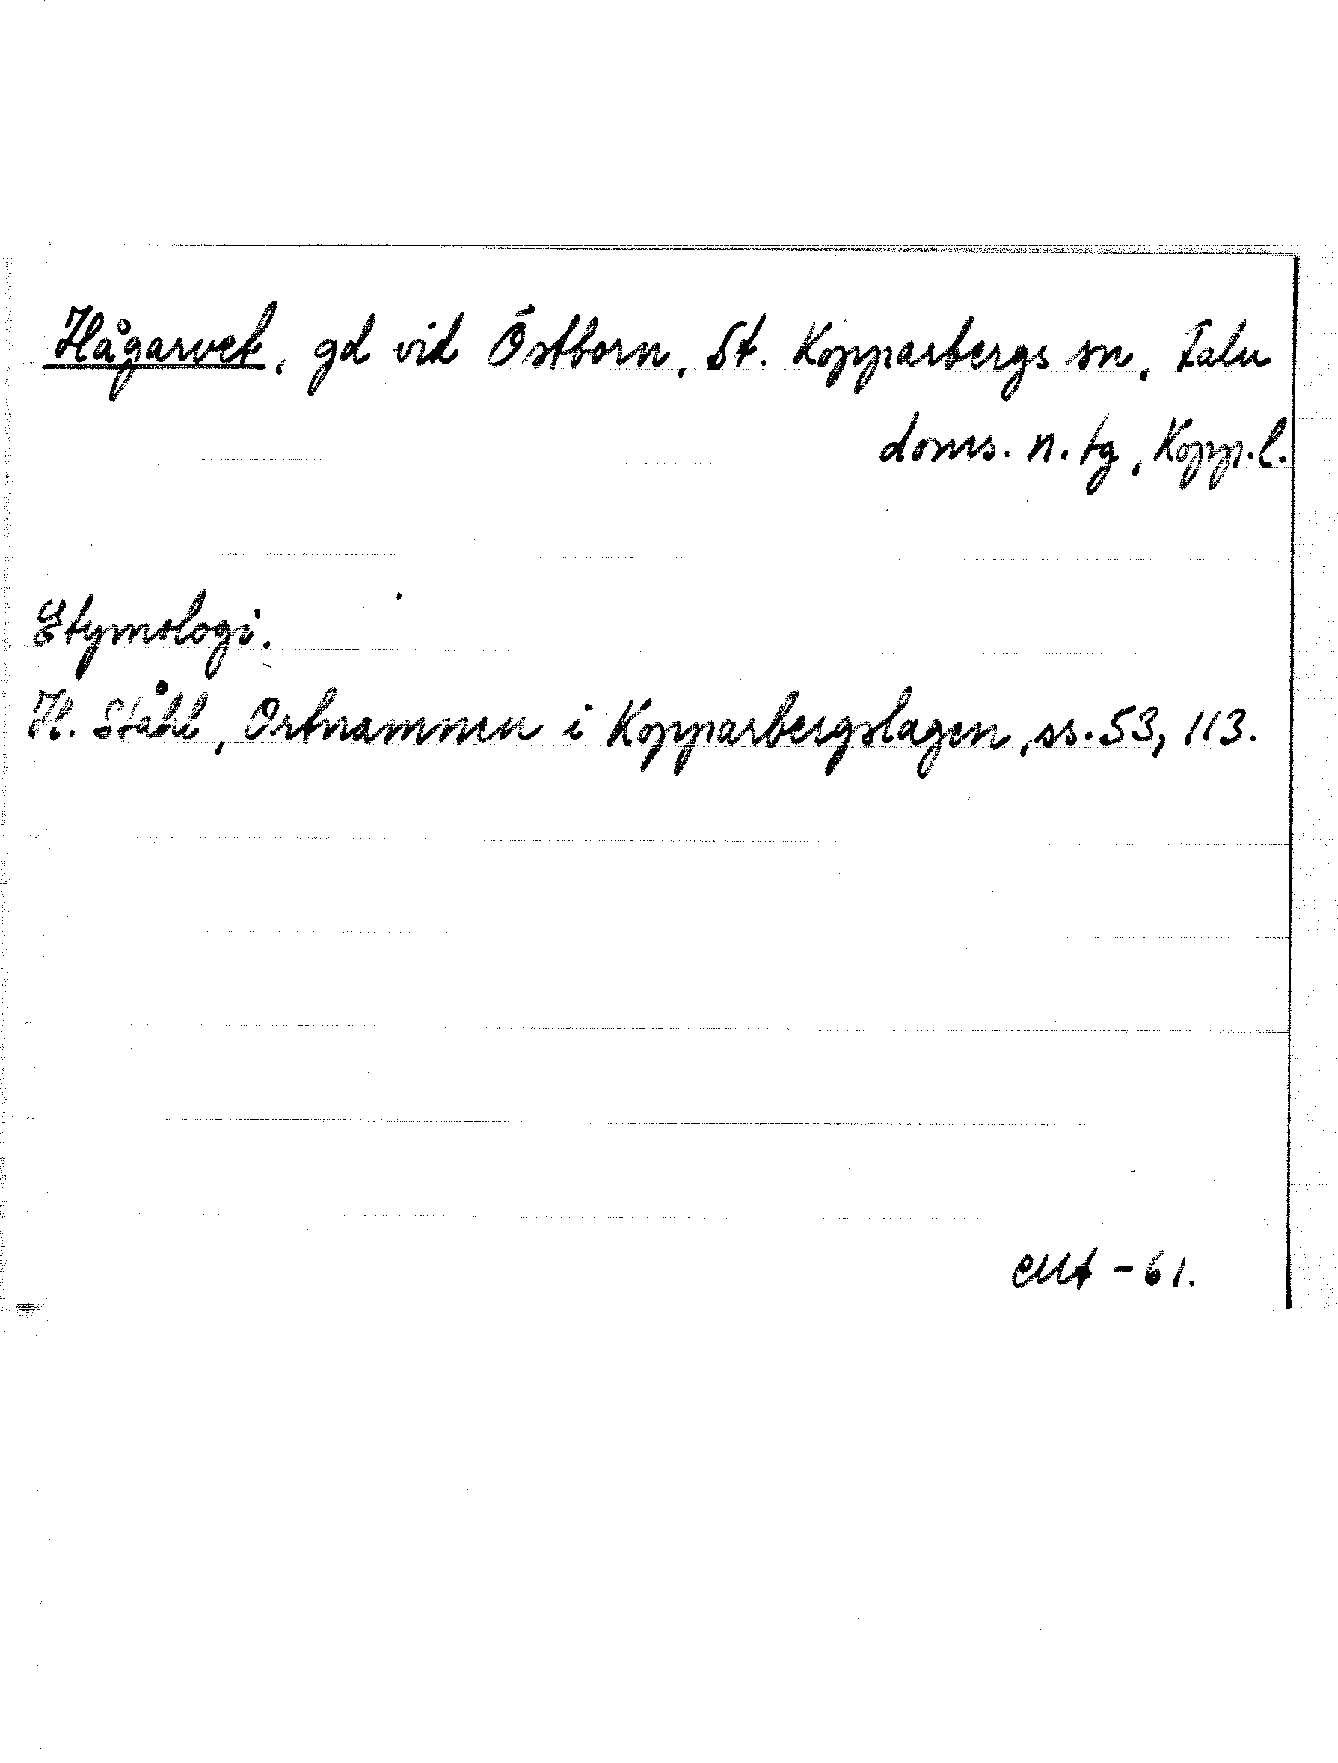 Hågarvet, gd vid Östborn, St. Kopparbergs sn, Falu
doms. n. tg, Kopp.l.
Etymologi.
H. Ståhl, Ortnamnen i Kopparbergslagen, ss. 53, 113.
-61.